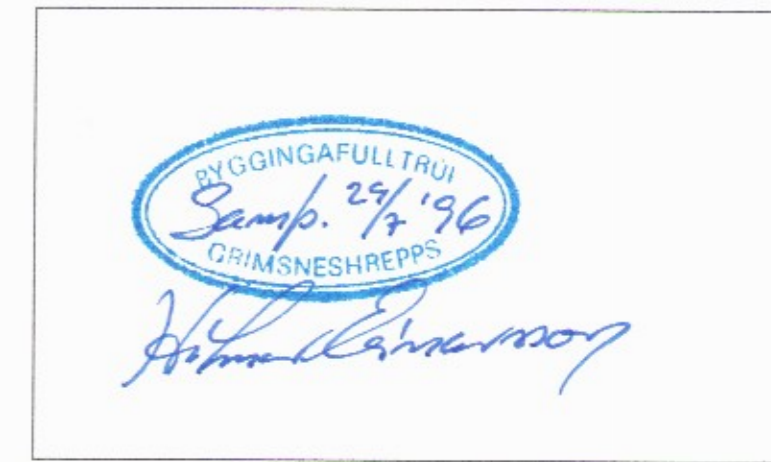 BYGGINGAFULLTRÚI
Samþ. 24/7 '96
GRÍMSNESHREPPS
Hilmar Einarsson